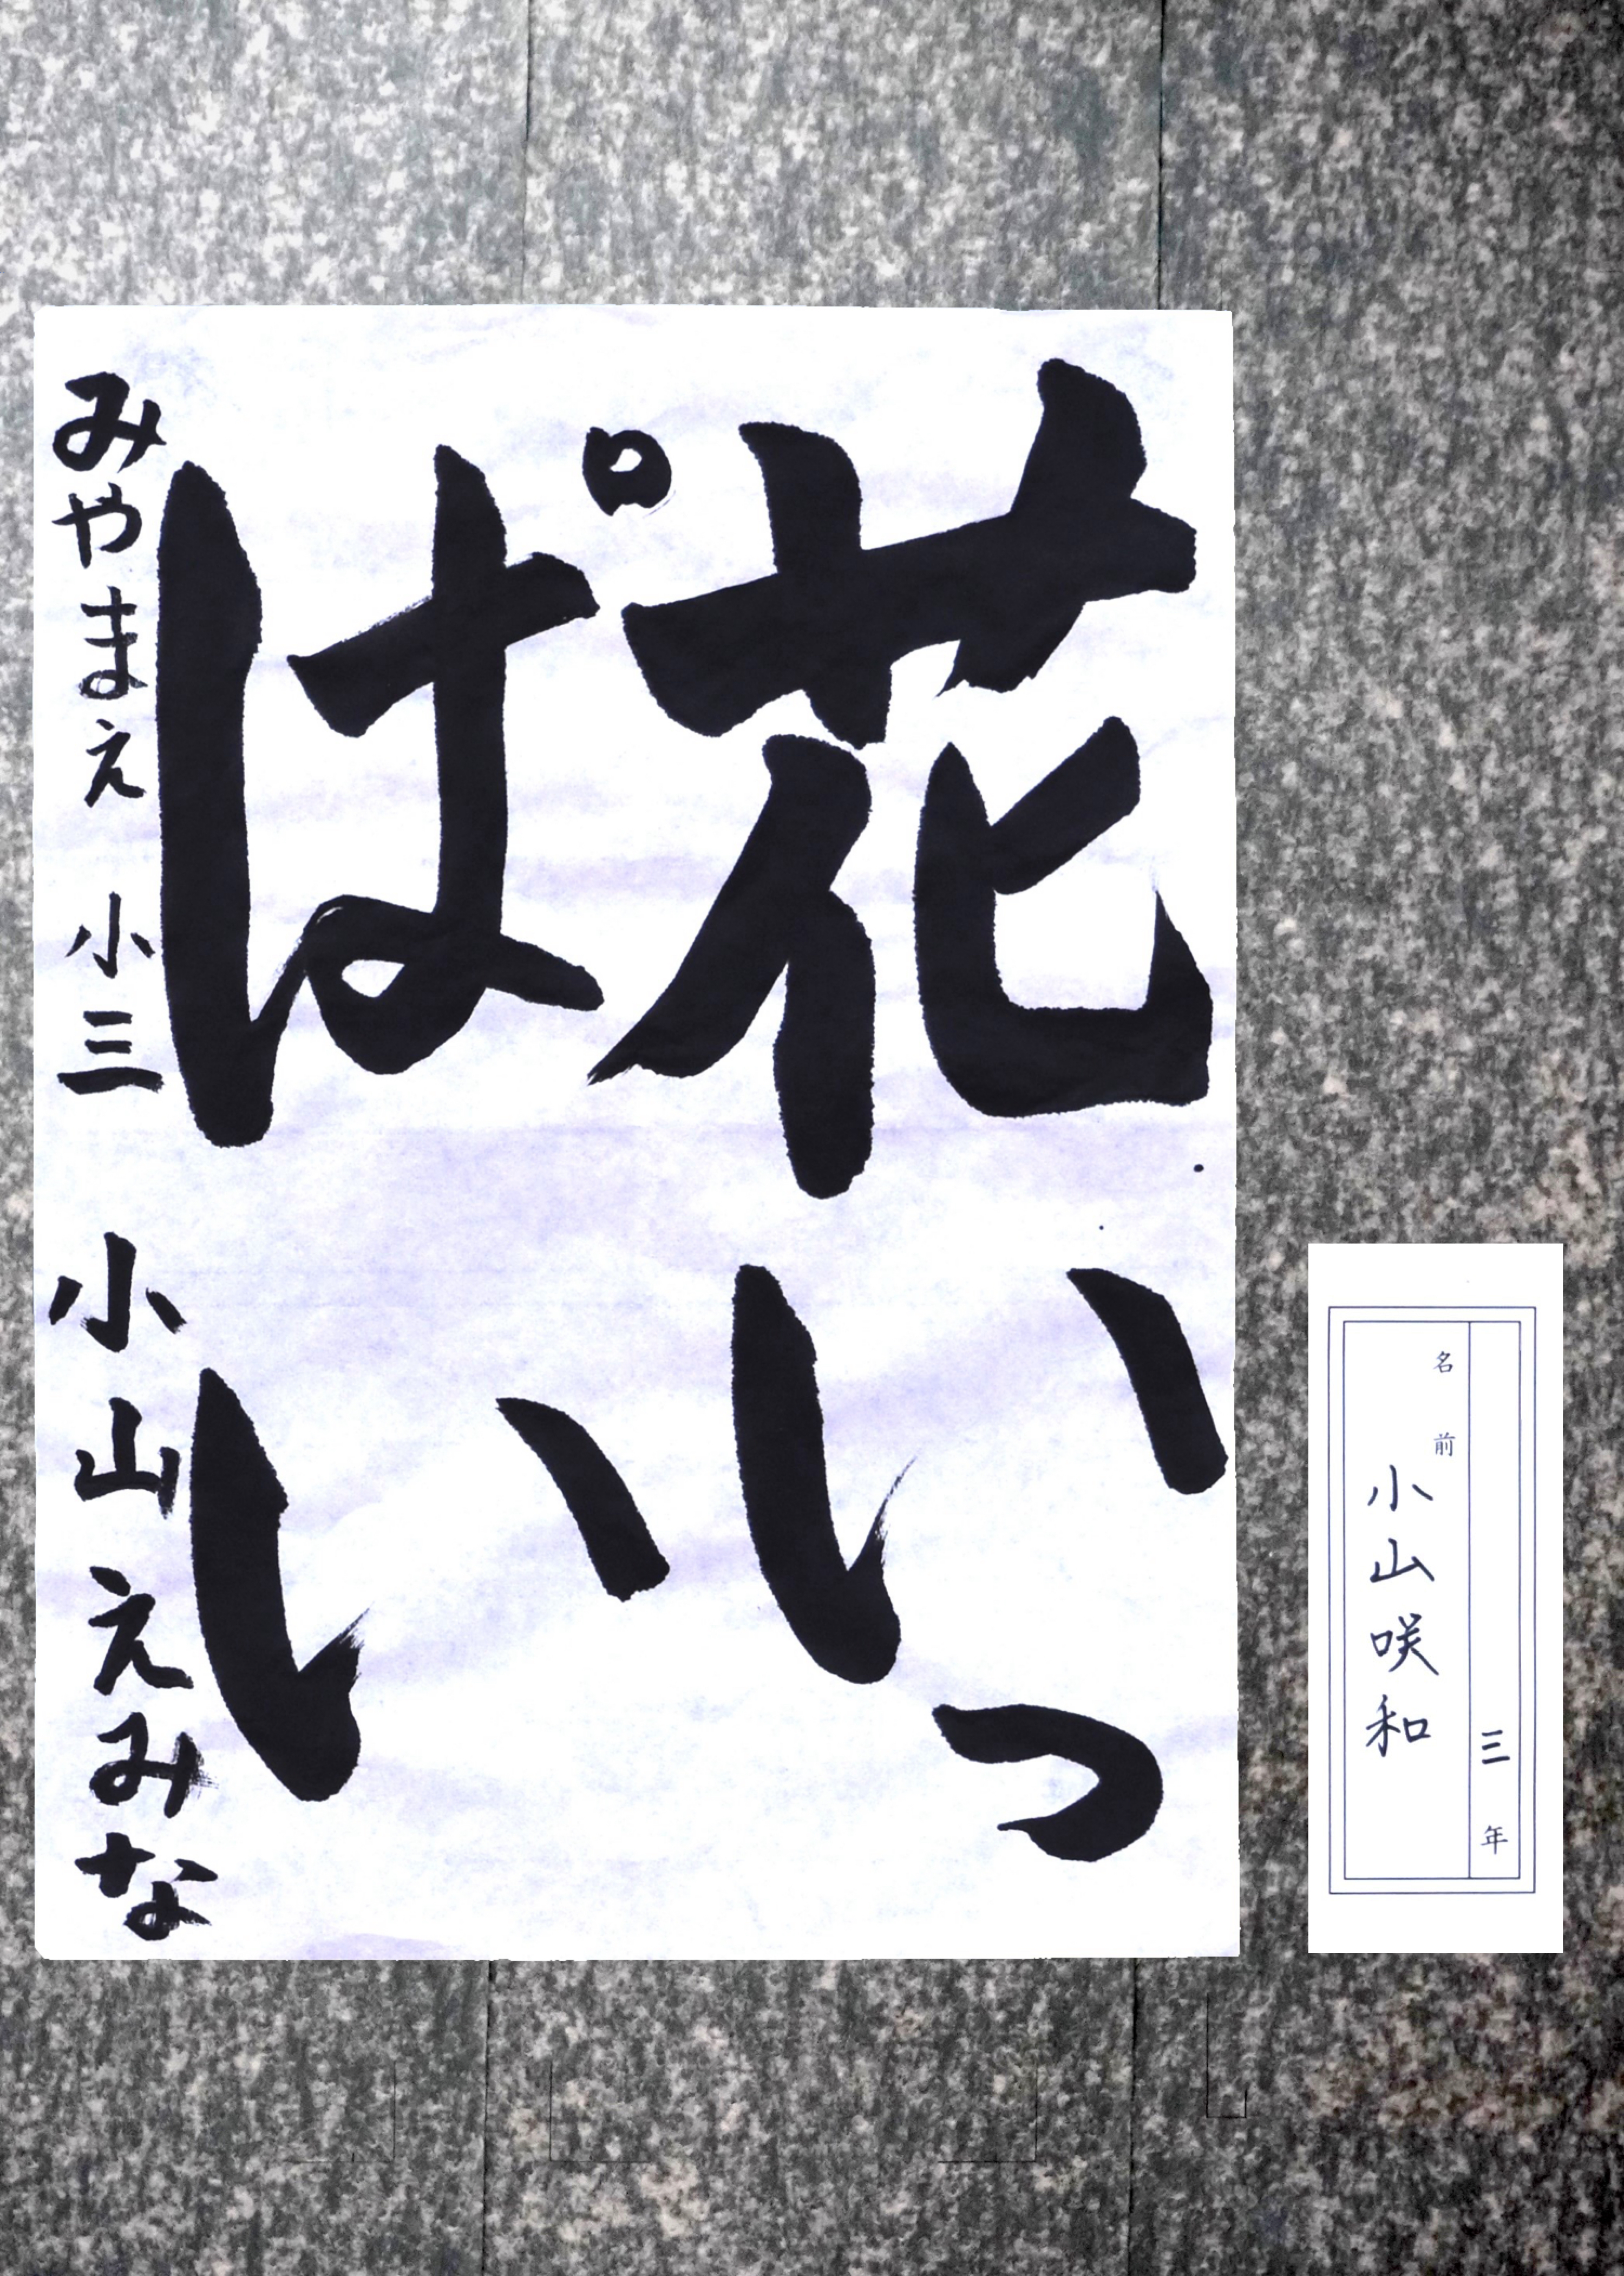 花いっ
ぱい
みやまえ 小三 小山えみな
三年
名前
小山咲和